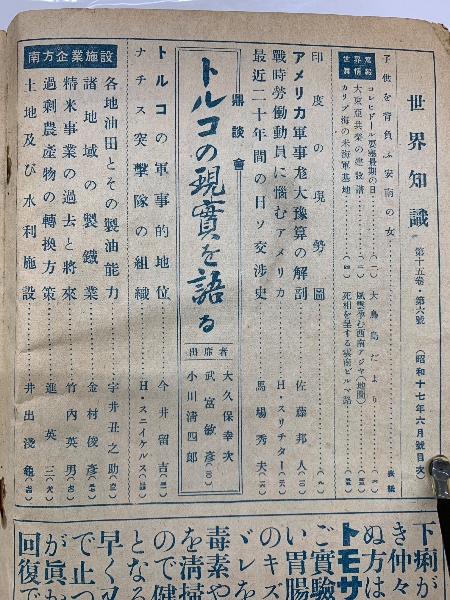 世界知識 第十五卷・第六號 (昭和十七年六月號目次)
子供を背負ふ安南の女 表紙
寫眞世界情報
コレヒドール要塞最期の日
大東亞共榮の建設譜
カリブ海の米海軍基地
大鳥島だより
風雲孕む西南アジヤ(地圖)
死相を呈する雲南ビルマ路
印度の現勢圖
アメリカ軍事尨大豫算の解剖 佐藤邦人
戰時勞働動員に惱むアメリカ H・スリチター
最近二十年間の日ソ交渉史 馬場秀夫
鼎談會
トルコの現實を語る
出席者
大久保幸次
武富敏彥
小川清四郎
トルコの軍事的地位 今井留吉
ナチス突擊隊の組織 H・スニイケルス
南方企業施設
各地油田とその製油能力 宇井丑之助
諸地域の製鐵業 金村俊彥
精米事業の過去と將來 竹內英男
過剩農產物の轉換方策 進英三
土地及び水利施設 井出淺龜
下痢が
き仲々
ぬ方は
トモサ
ご實驗
い胃腸
のキズ
バレを
毒素や
を清掃
ので健
となる
早く又
で止つ
が眞か
回復で